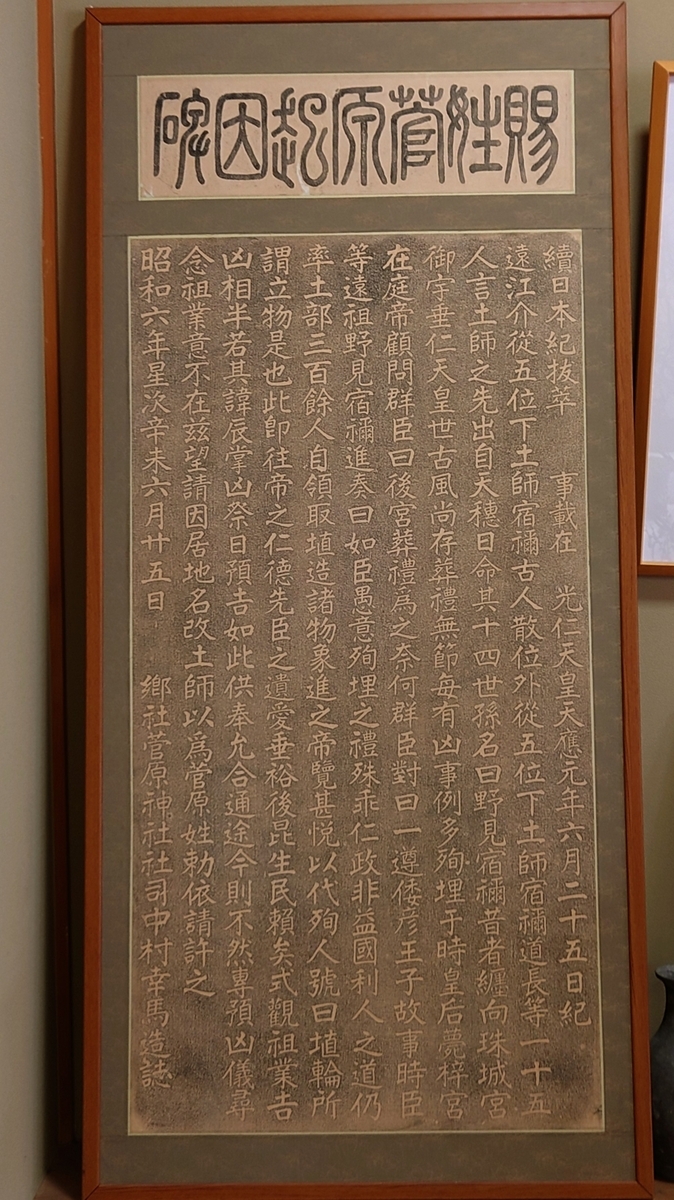 賜姓菅原起因碑
續日本紀拔萃　事載在　光仁天皇天應元年六月二十五日紀
遠江介從五位下土師宿禰古人散位外從五位下土師宿禰道長等一十五
人言土師之先出自天穗日命其十四世孫名曰野見宿禰昔者纏向珠城宮
御宇垂仁天皇世古風尚存葬禮無節每有凶事例多殉埋于時皇后薨梓宮
在庭帝顧問群臣曰後宮葬禮爲之奈何群臣對曰一遵倭彦王子故事時臣
等遠祖野見宿禰進奏曰如臣愚意殉埋之禮殊乖仁政非益國利人之道仍
率土部三百餘人自領取埴造諸物象進之帝覽甚悅以代殉人號曰埴輪所
謂立物是也此卽往帝之仁德先臣之遺愛垂裕後昆生民賴矣式觀祖業吉
凶相半若其諱辰掌凶祭日預吉如此供奉允合通途今則不然專預凶儀尋
念祖業意不在玆望請因居地名改土師以爲菅原姓勅依請許之
昭和六年星次辛未六月廿五日　鄉社菅原神社社司中村幸馬造誌